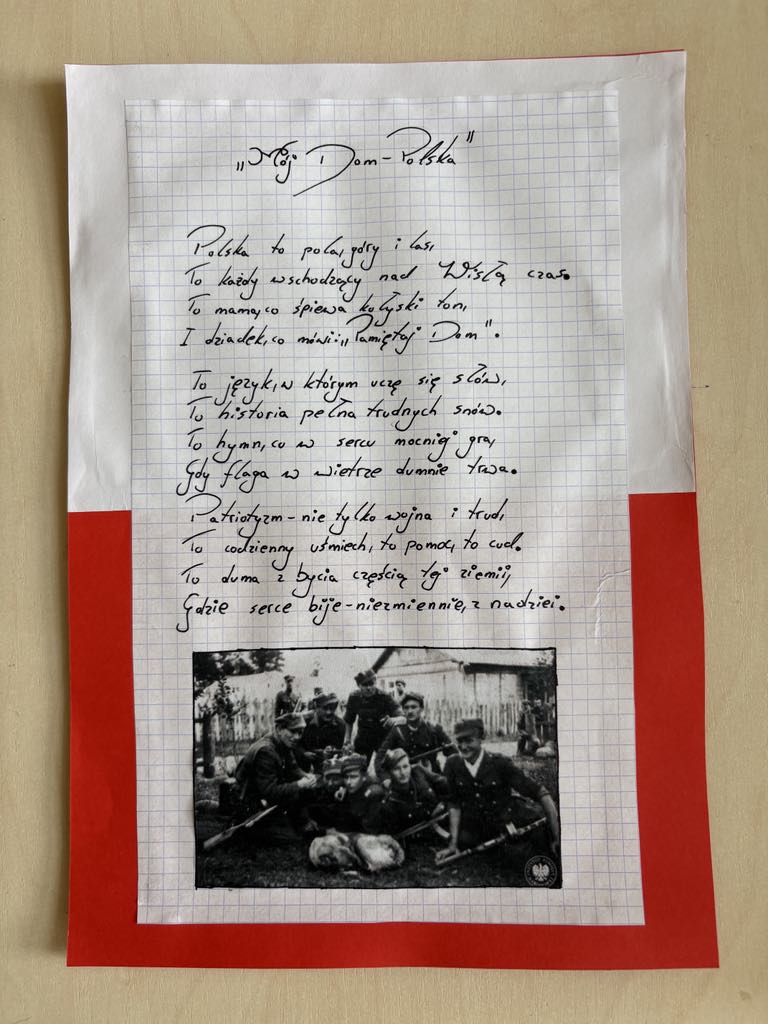 „Mój Dom-Polska"
Polska to pola, góry i las,
To każdy wschodzący nad Wisłą czas.
To mama, co śpiewa kołyski ton,
I dziadek, co mówi: „Pamiętaj Dom".
To język, w którym uczę się słów,
To historia pełna trudnych snów.
To hymn, co w sercu mocniej gra,
Gdy flaga w wietrze dumnie trwa.
Patriotyzm-nie tylko wojna i trud,
To codzienny uśmiech, to pomoc, to cud.
To duma z bycia częścią tej ziemii,
Gdzie serce bije-niezmiennie, z nadziei.